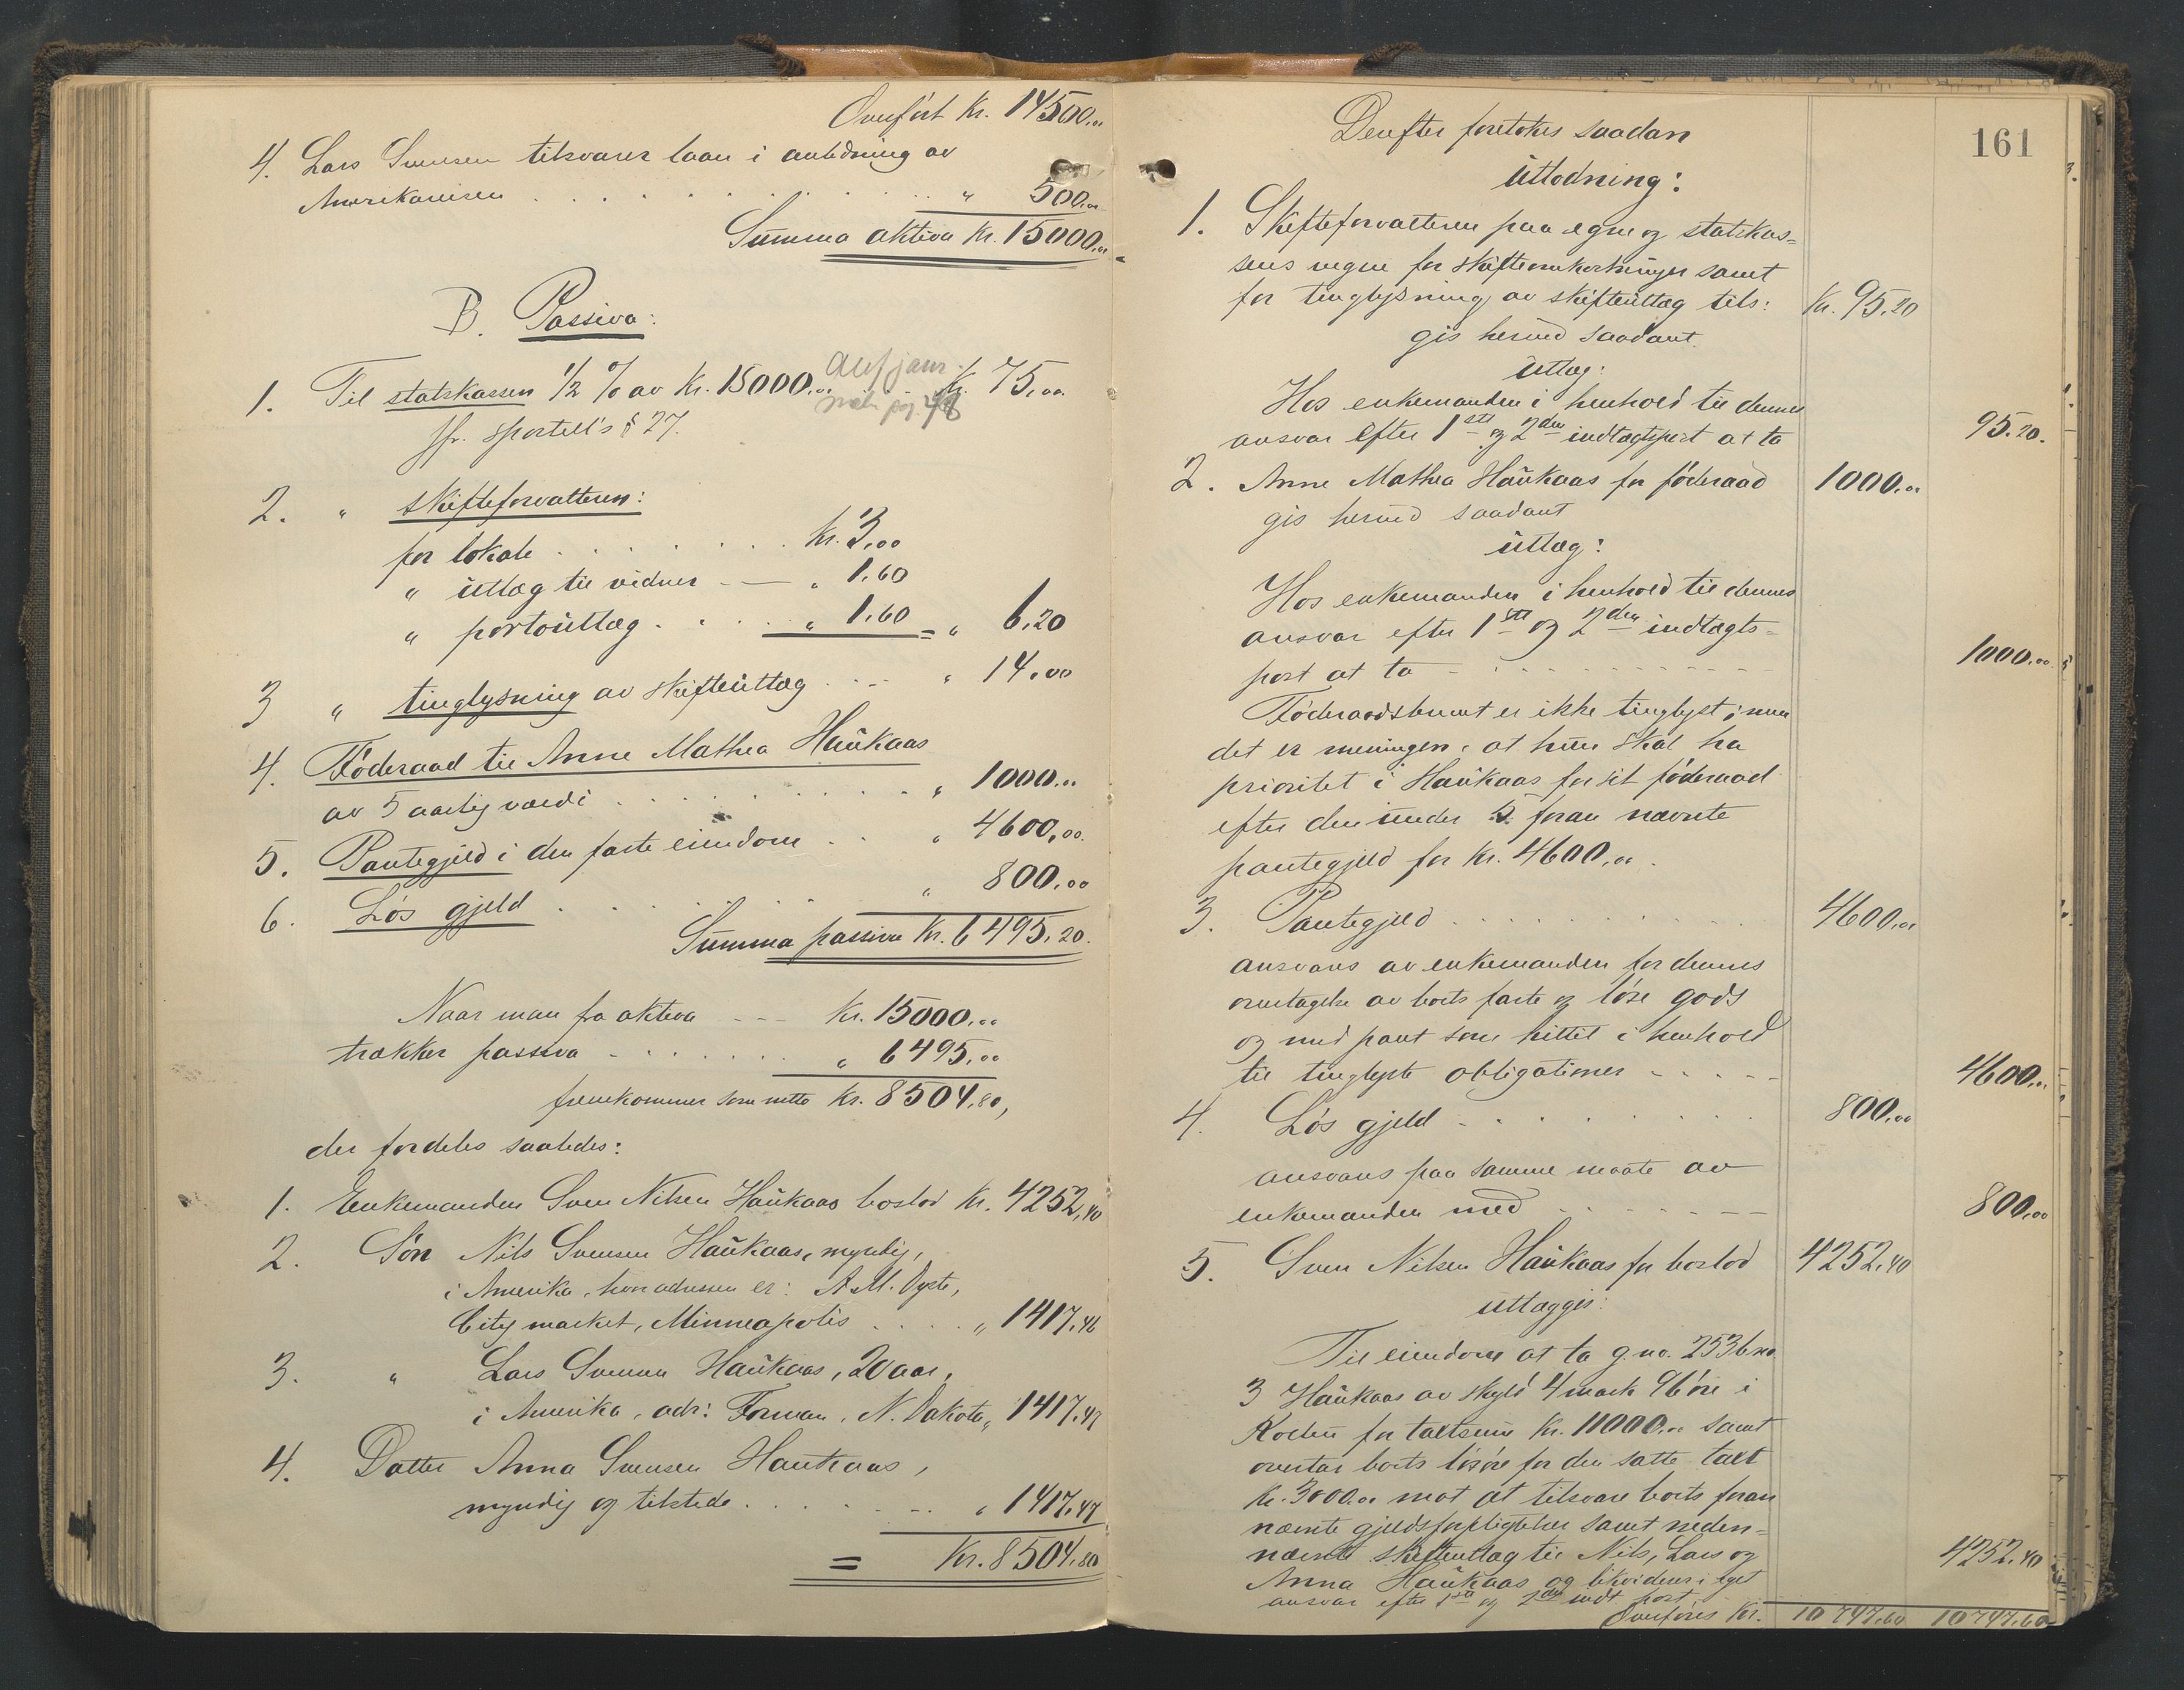 Overført Kr. 14500.00
4. Lars Svensen tilsvarer laan i anledning av
Amerikareisen . . . " 500.00
Summa aktiva Kr. 15000.00
B. Passiva:
1. Til statskassen 1/2 % av Kr. 15000.00 Kr. 75.00
jfr. sportell's § 27.
2. " skifteforvalteren:
for lokale . . . Kr. 3.00
" utlæg til vidner — " 1.60
" portoutlæg . . . " 1.60 = " 6.20
3 " tinglysning av skifteutlæg . . . " 14.00
4. Föderaad til Anne Mathea Haukaas
av 5 aarlig værdi . . . " 1000.00
5. Pantegjeld i den faste eiendom . . " 4600.00
6. Løs gjeld . . . " 800.00
Summa passiva Kr. 6495.20
Naar man fra aktiva - - - Kr. 15000.00
trækker passiva . . . " 6495.00
fremkommer som netto Kr. 8504.80,
der fordeles saaledes:
1. Enkemanden Sven Nilsen Haukaas boslod Kr. 4252,40
2. Søn Nils Svensen Haukaas, myndig,
i Amerika, hvor adressen er: A. M.
City market, Minneapolis . . . " 1417,46
3. " Lars Svensen Haukaas, 20 aar,
i Amerika, adr: Forman, N. Dakota " 1417,47
4. Datter Anna Svensen Haukaas,
myndig og tilstede . . . " 1417,47
= Kr. 8504.80
161
Derefter foretokes saadan
Utlodning:
1. Skifteforvalteren paa egne og statskas-
sens vegne for skifteomkostninger samt
for tinglysning av skifteutlæg tils: Kr. 95.20
gis herved saadant
utlæg:
Hos enkemanden i henhold til dennes
ansvar efter 1ste og 2den indtægtspost at ta 95.20.
2. Anne Mathea Haukaas for föderaad 1000.00
gis herved saadant
utlæg:
Hos enkemanden i henhold til dennes
ansvar efter 1ste og 2den indtægts-
post at ta - . . . 1000.00
Föderaadsbrevet er ikke tinglyst; men
det er meningen, at hun skal ha
prioritet i Haukaas for sit föderaad
efter den under 5. foran nævnte
pantegjeld for Kr. 4600,00.
3. Pantegjeld . . . 4600.00
ansvares av enkemanden for dennes
overtagelse av boets faste og løse gods
og med pant som heftet i henhold
til tinglyste obligationer - - - - - 4600.00
4. Løs gjeld - . . . 800.00
ansvares paa samme maate av
enkemanden med . . . 800.00
5. Sven Nilsen Haukaas for boslod 4252.40
utlægges:
Til eiendom at ta g.no. 253 b.no.
3 Haukaas av skyld 4 mark 96 øre i
for takstsum Kr. 11000.00 samt
overtar boets løsøre for den satte takst
Kr. 3000.00 mot at tilsvare boets foran
nævnte gjeldsforpligtelser samt neden-
nævnte skifteutlæg til Nils, Lars og
Anna Haukaas og likviderer i eget 4252.40
ansvar efter 1ste og 2den indt. post.
Overføres Kr. 10747.60 10747.60